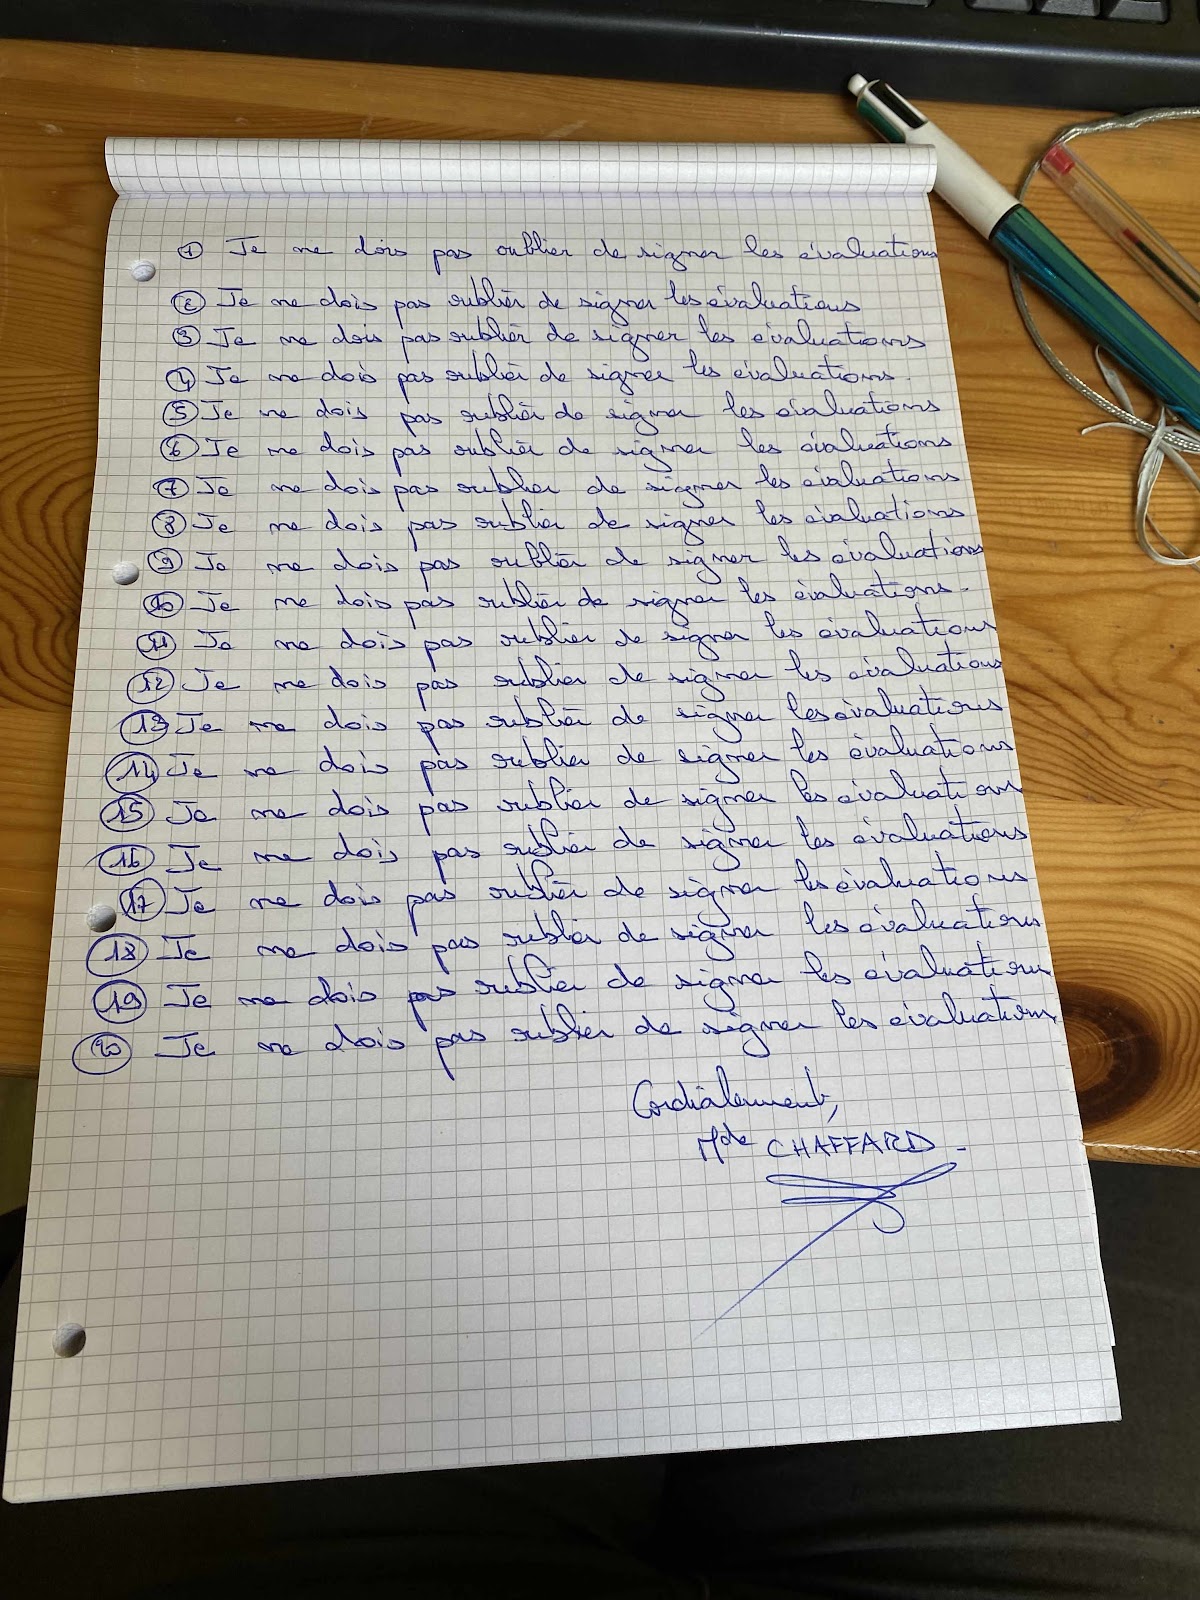 1 Je ne dois pas oublier de signer les évaluations
2 Je ne dois pas oublier de signer les évaluations
3 Je ne dois pas oublier de signer les évaluations
4 Je ne dois pas oublier de signer les évaluations.
5 Je ne dois pas oublier de signer les évaluations
6 Je ne dois pas oublier de signer les évaluations
7 Je ne dois pas oublier de signer les évaluations
8 Je ne dois pas oublier de signer les évaluations
9 Je ne dois pas oublier de signer les évaluations
10 Je ne dois pas oublier de signer les évaluations.
11 Je ne dois pas oublier de signer les évaluations
12 Je ne dois pas oublier de signer les évaluations
13 Je ne dois pas oublier de signer les évaluations
14 Je ne dois pas oublier de signer les évaluations
15 Je ne dois pas oublier de signer les évaluations
16 Je ne dois pas oublier de signer les évaluations
17 Je ne dois pas oublier de signer les évaluations
18 Je ne dois pas oublier de signer les évaluations
19 Je ne dois pas oublier de signer les évaluations
20 Je ne dois pas oublier de signer les évaluations
Cordialement,
Mde CHAFFARD -